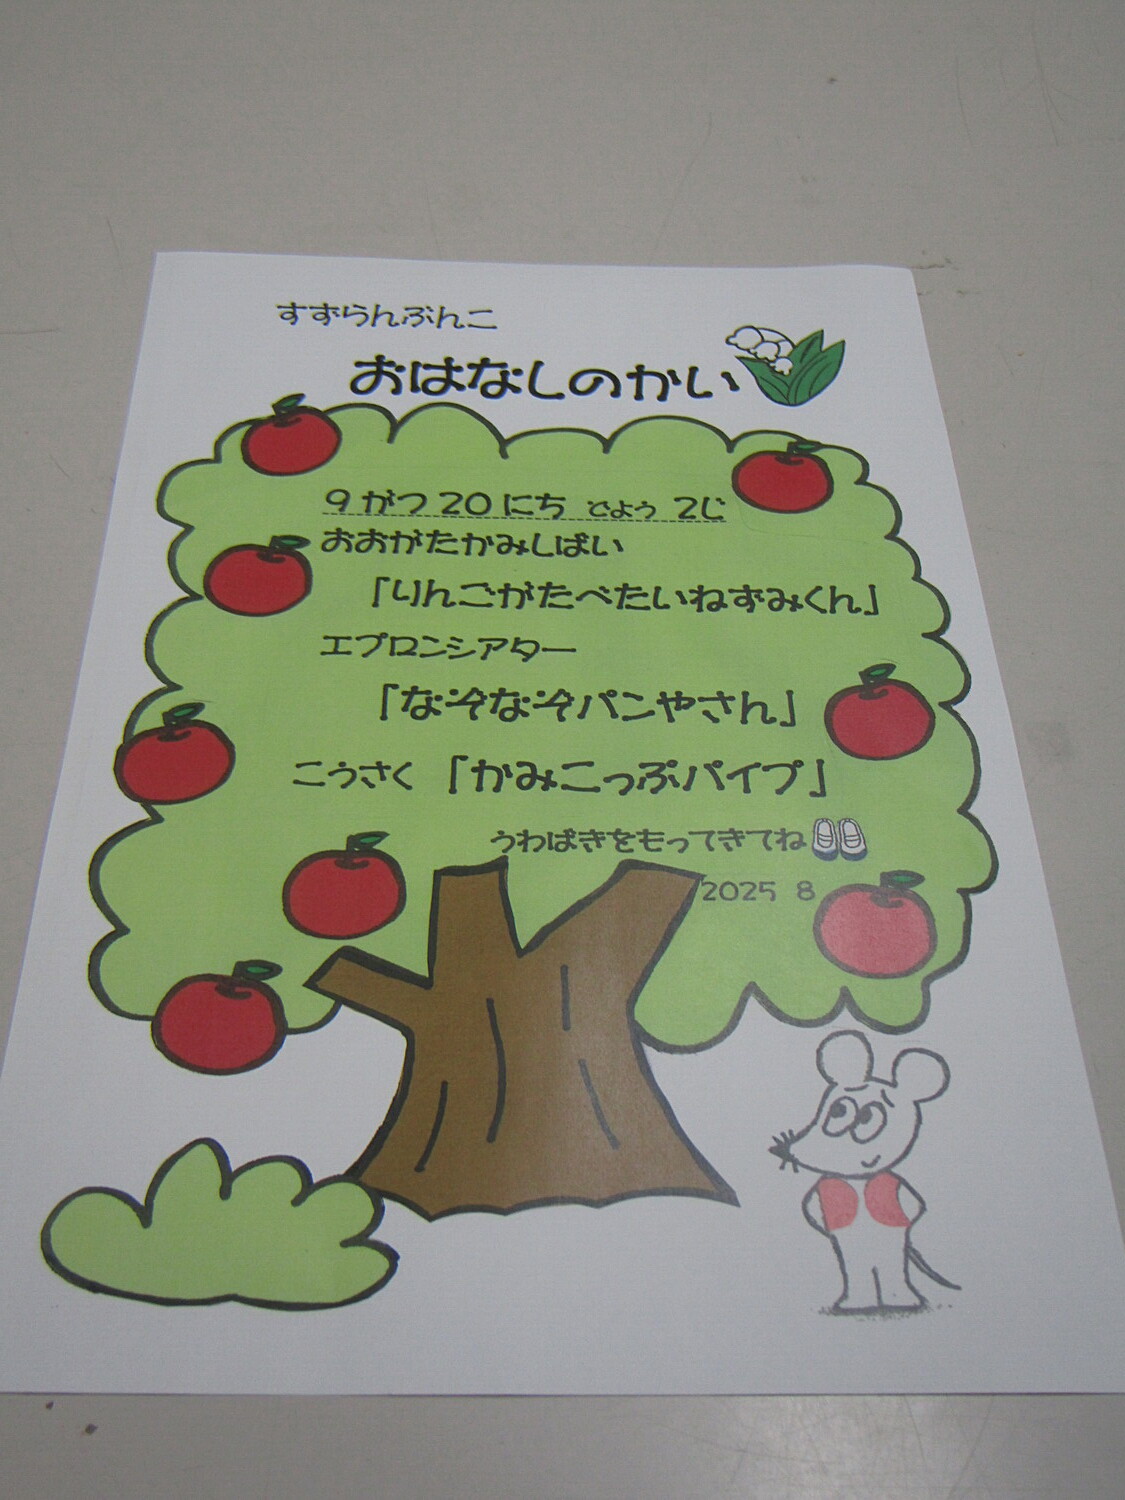 すずらんぶんこ
おはなしのかい
9がつ20にち どよう 2じ
おおがたかみしばい
「りんごがたべたいねずみくん」
エプロンシアター
「なぞなぞパンやさん」
こうさく 「かみこっぷパイプ」
うわばきをもってきてね
2025 8